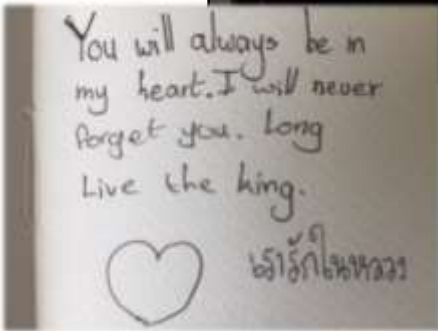 You will always be in
my heart. I will never
forget you. Long
Live the king.
เรารักในหลวง